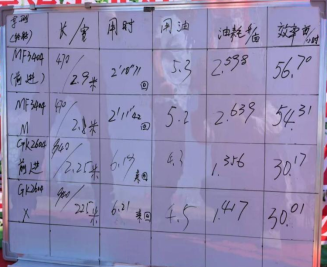 长/宽 用时 用油 油耗/亩 效率亩/小时
MF3404 (前进) 470/2.9米 2'18"71 回 5.3 2.598 56.70
MF3404 470/2.8米 2'11"42 回 5.2 2.639 54.31
M
GK2604 前进 460/2.25米 来回 4.3 1.356 30.17
GK2604 460/2.25米 6.21 来回 4.5 1.417 30.01
X